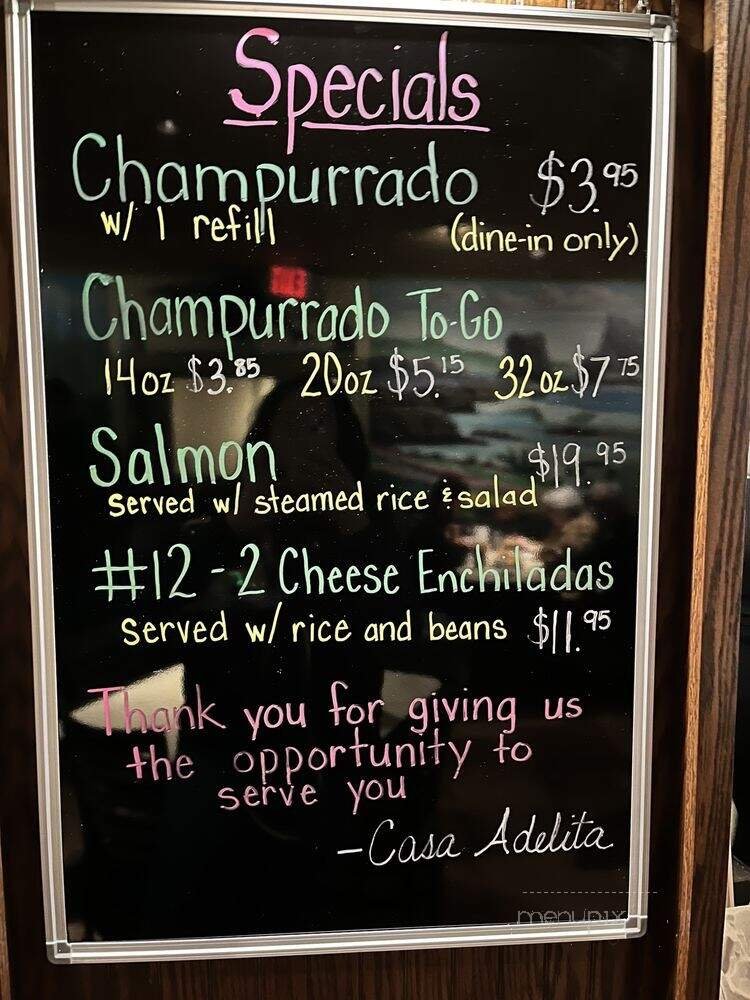 Specials
Champurrado $3.95
w/ 1 refill (dine-in only)
Champurrado To-Go
14oz $3.85 20oz $5.15 32oz $7.75
Salmon $19.95
served w/ steamed rice & salad
#12 - 2 Cheese Enchiladas
served w/ rice and beans $11.95
Thank you for giving us
the opportunity to
serve you
- Casa Adelita
menupix